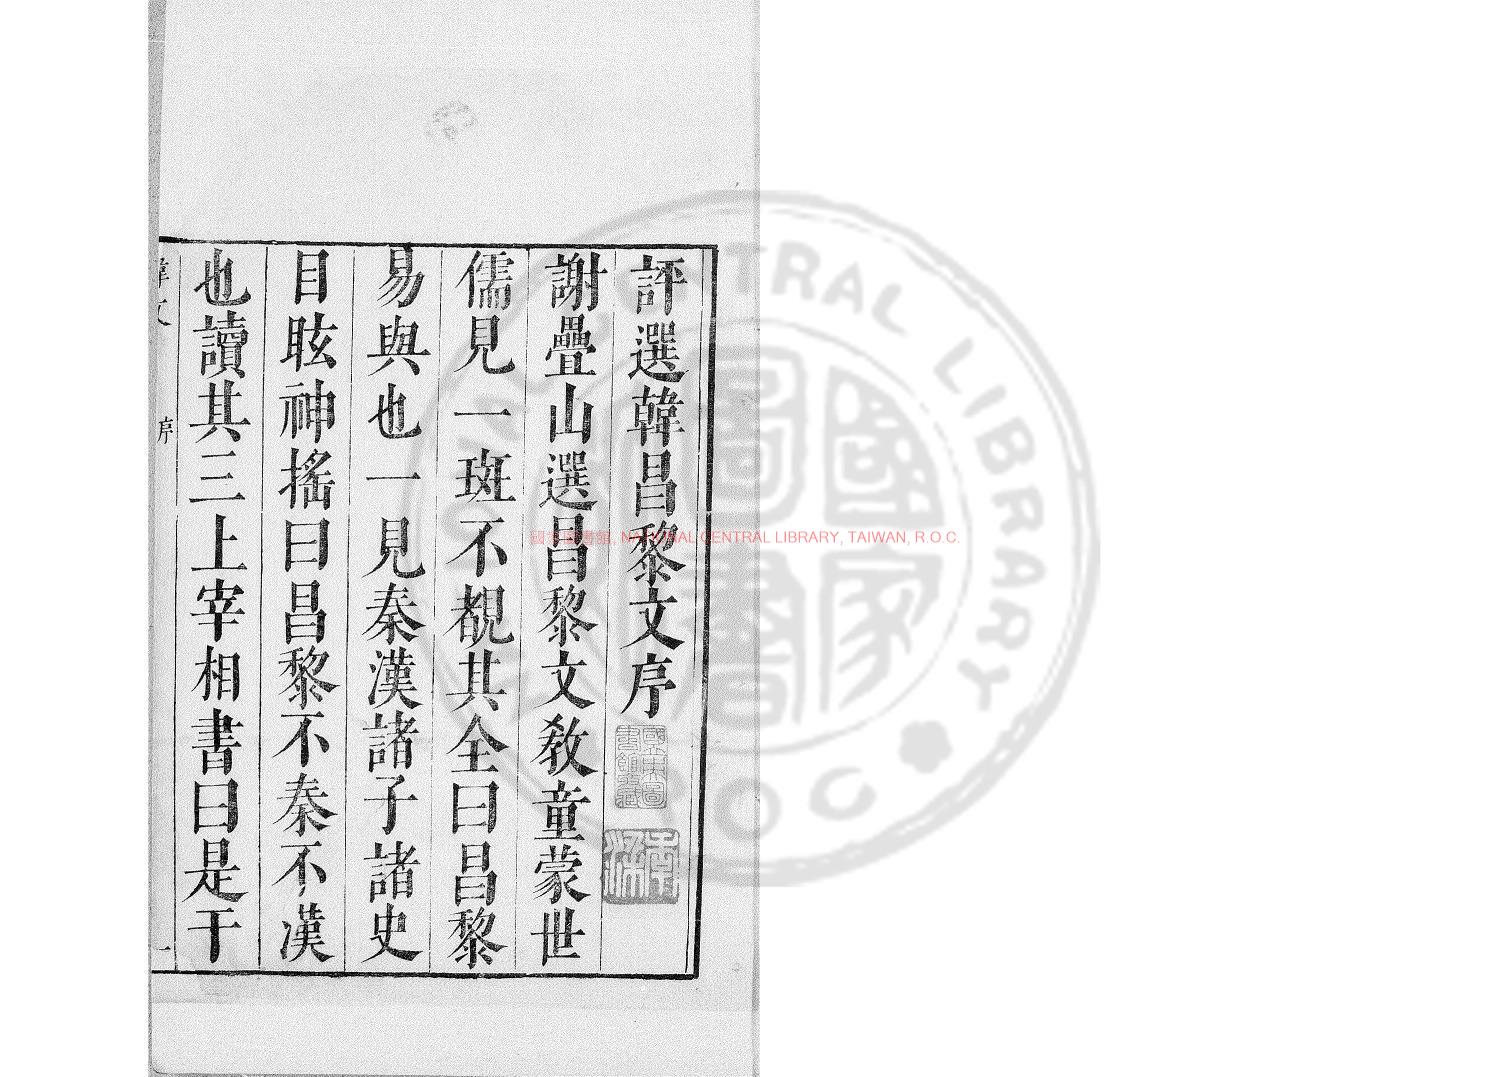 評選韓昌黎文序
謝疊山選昌黎文教童蒙世
儒見一斑不覩其全曰昌黎
易與也一見秦漢諸子諸史
目眩神搖曰昌黎不秦不漢
也讀其三上宰相書曰是干
韓文
序
一
國家圖書館, NATIONAL CENTRAL LIBRARY, TAIWAN, R.O.C.